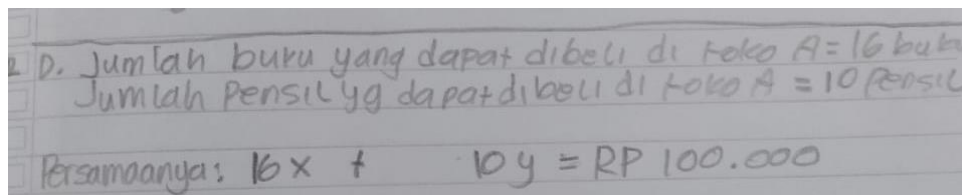 2 D. Jumlah buku yang dapat dibeli di toko A = 16 buku
Jumlah Pensil yg dapat dibeli di toko A = 10 Pensil
Persamaanya: 16x + 10y = RP 100.000